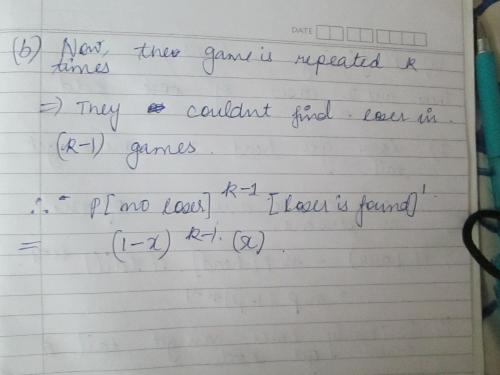 DATE
(b) Now, the game is repeated k
times
=> They couldnt find loser in
(k-1) games.
∴ P[no loser]^k-1 [loser is found]^1
= (1-x)^k-1. (x).